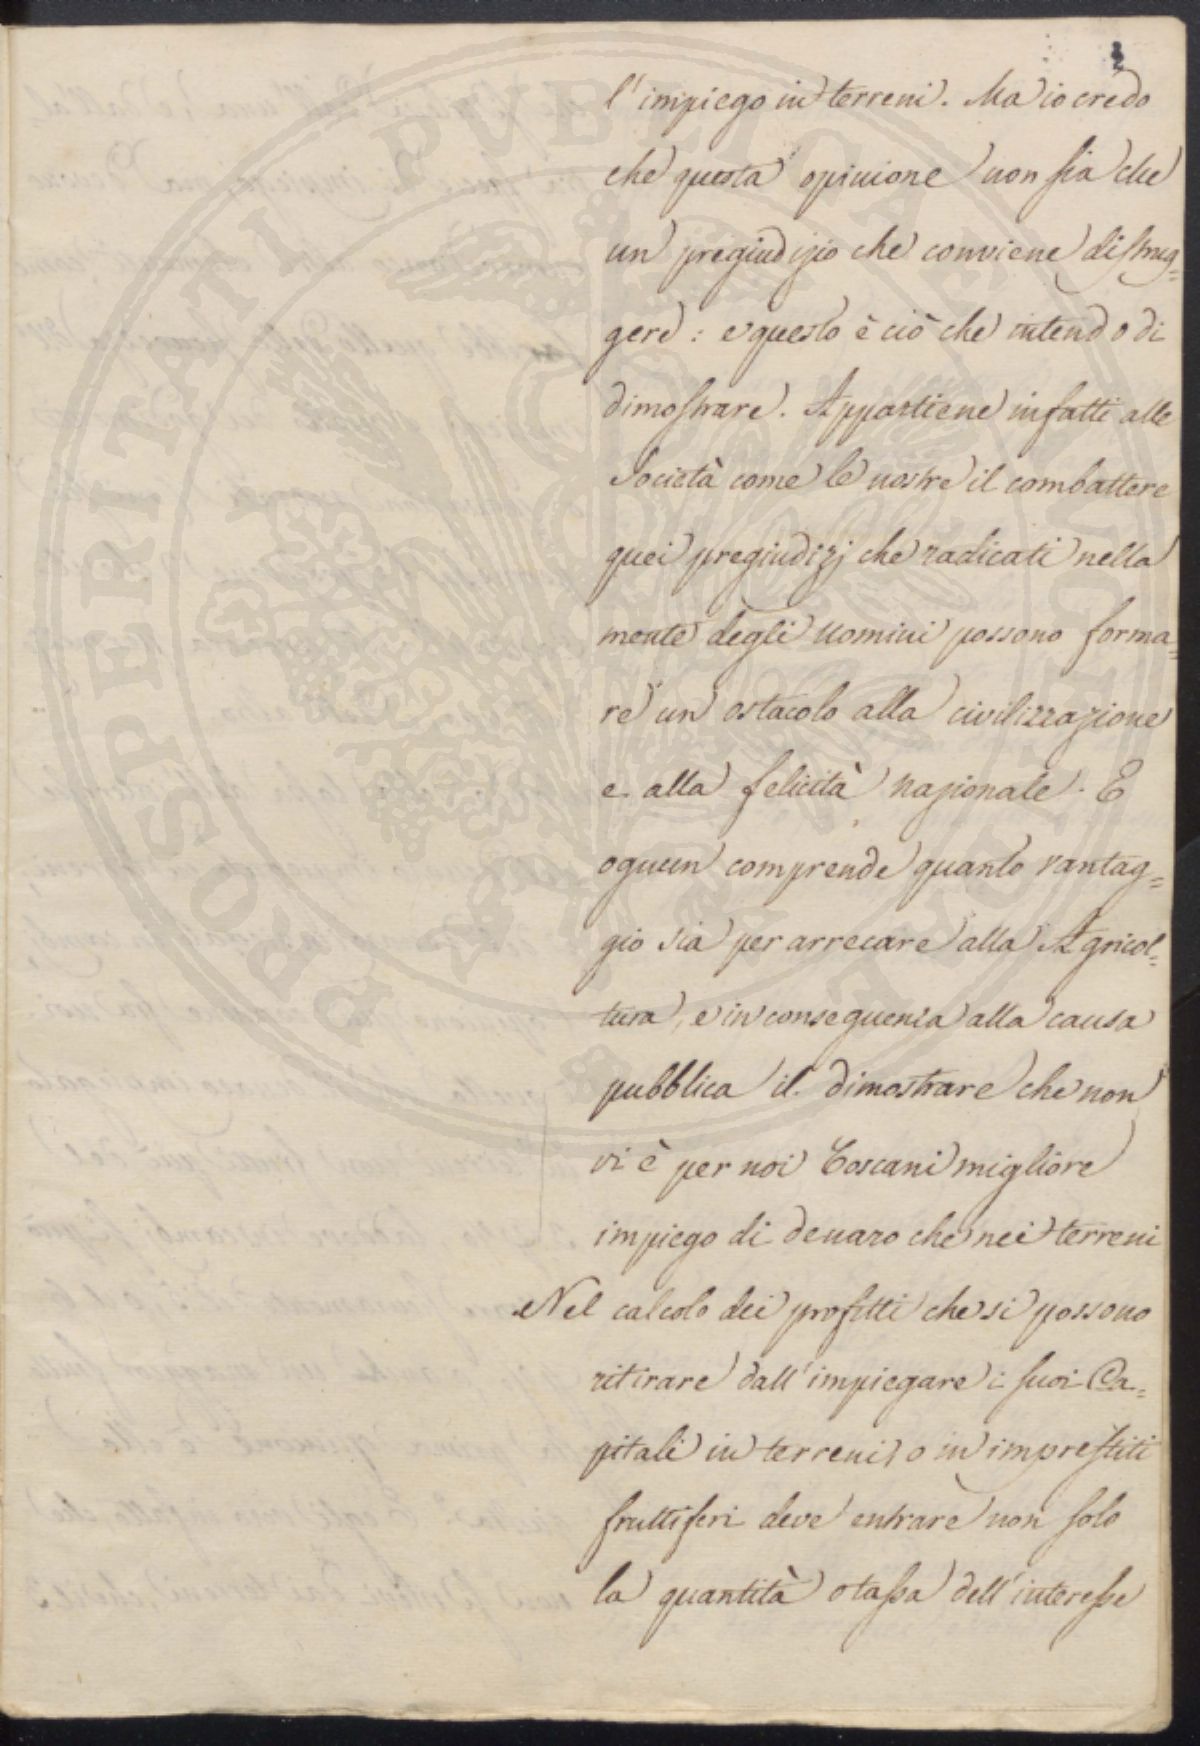 2
l'impiego in terreni. Ma io credo
che questa opinione non sia che
un pregiudizio che conviene distrug=
gere: e questo è ciò che intendo di
dimostrare. Appartiene infatti alle
Società come le nostre il combattere
quei pregiudizj che radicati nella
mente degli uomini possono forma=
re un ostacolo alla civilizzazione
e alla felicità nazionale. E
ognun comprende quanto vantag=
gio sia per arrecare alla Agricol=
tura, e in conseguenza alla causa
pubblica il dimostrare che non
vi è per noi Toscani migliore
impiego di denaro che nei terreni
Nel calcolo dei profitti che si possono
ritirare dall'impiegare i suoi Ca=
pitali in terreni, o in imprestiti
fruttiferi deve entrare non solo
la quantità o tassa dell'interesse
PROSPERITATI PUBLICAE AUGENDAE